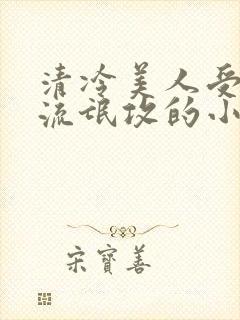 清冷美人受
流氓攻的小
宋寶善